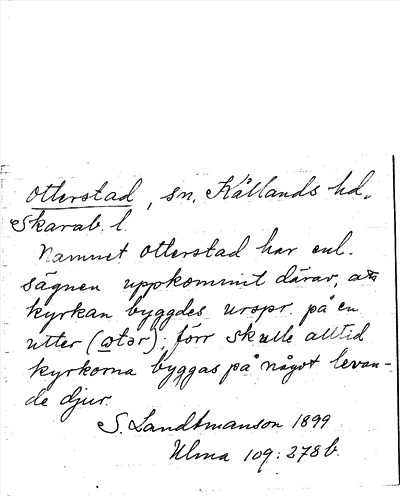 Otterstad, sn, Kållands hd.
Skarab. l.
Namnet Otterstad har enl.
sägnen uppkommit därav, att
kyrkan byggdes urspr. på en
utter (otər); förr skulle alltid
kyrkorna byggas på något levan-
de djur.
S. Landtmanson 1899
Ulma 109:278 b.